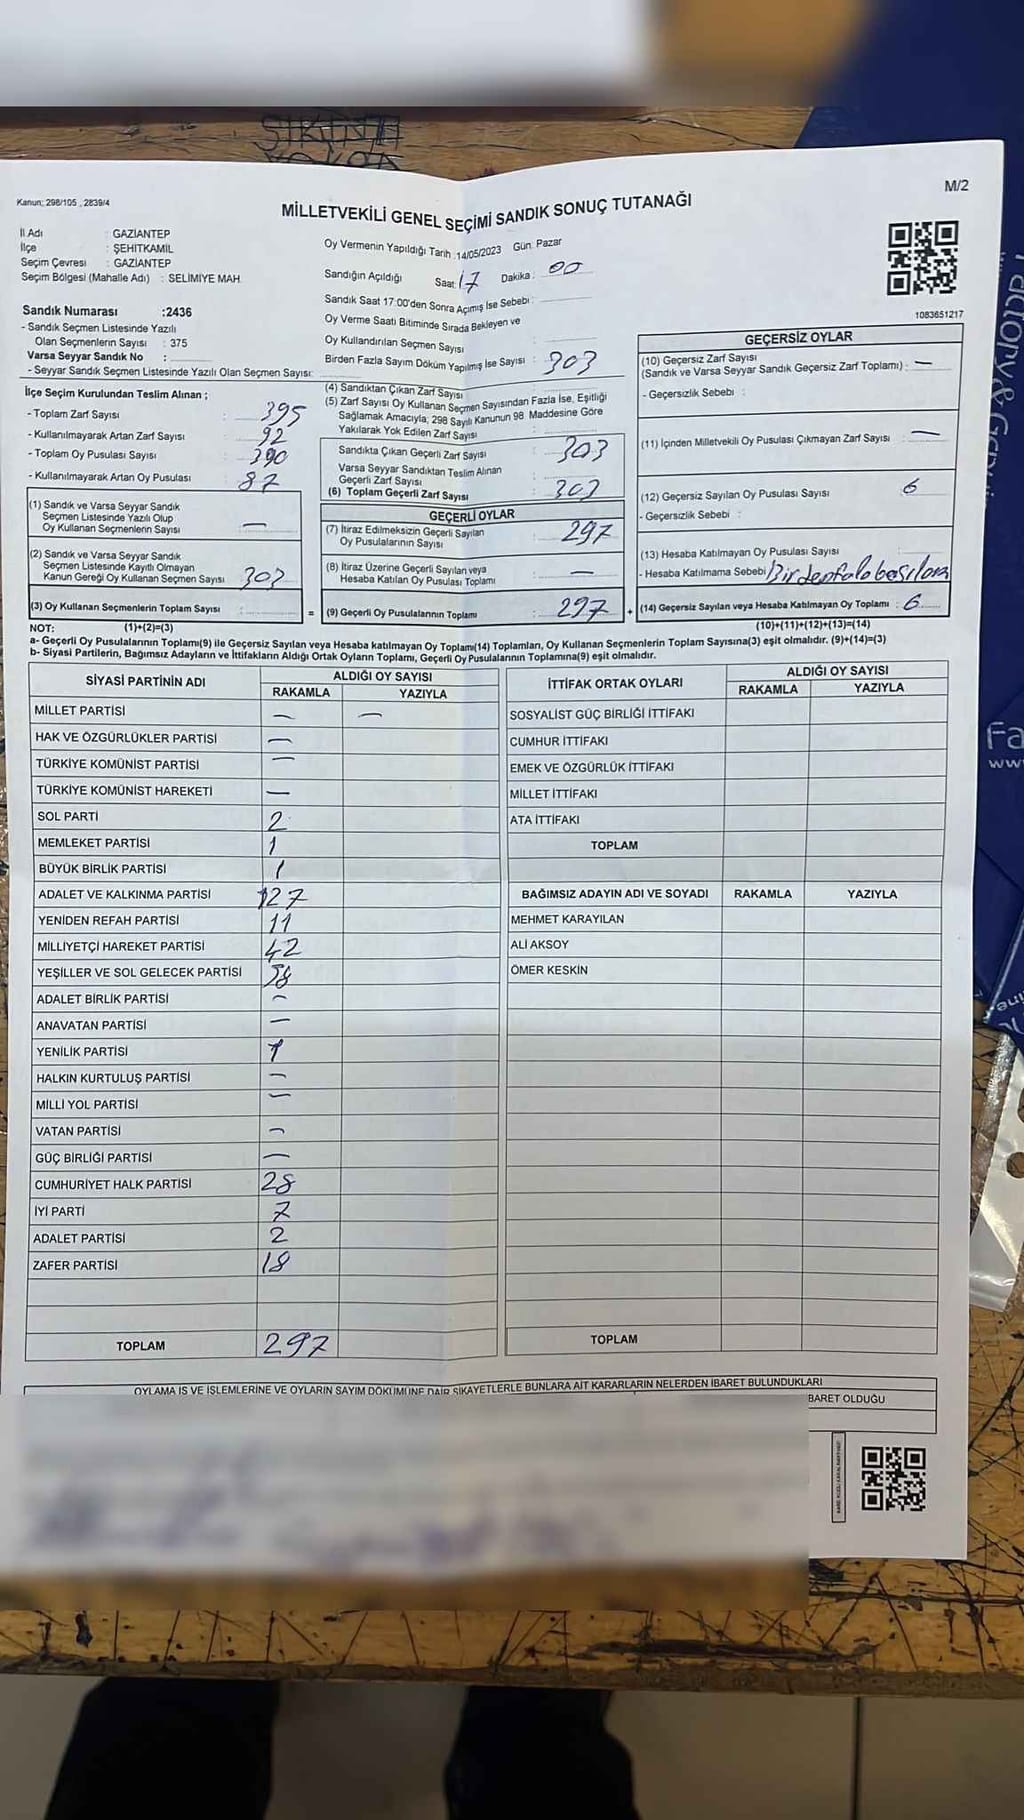 SIKINTI
YOKSA
Kanun; 298/105 , 2839/4
M/2
MİLLETVEKİLİ GENEL SEÇİMİ SANDIK SONUÇ TUTANAĞI
İl Adı : GAZİANTEP
İlçe : ŞEHİTKAMİL
Seçim Çevresi : GAZİANTEP
Seçim Bölgesi (Mahalle Adı) : SELİMİYE MAH.
Oy Vermenin Yapıldığı Tarih :14/05/2023 Gün: Pazar
Sandığın Açıldığı Saat: 17 Dakika : 00
Sandık Saat 17:00'den Sonra Açımış İse Sebebi :
Oy Verme Saati Bitiminde Sırada Bekleyen ve
Oy Kullandırılan Seçmen Sayısı
Birden Fazla Sayım Döküm Yapılmış İse Sayısı : 303
1083651217
Sandık Numarası :2436
- Sandık Seçmen Listesinde Yazılı
Olan Seçmenlerin Sayısı : 375
Varsa Seyyar Sandık No :
- Seyyar Sandık Seçmen Listesinde Yazılı Olan Seçmen Sayısı:
İlçe Seçim Kurulundan Teslim Alınan ;
- Toplam Zarf Sayısı : 395
- Kullanılmayarak Artan Zarf Sayısı : 92
- Toplam Oy Pusulası Sayısı : 390
- Kullanılmayarak Artan Oy Pusulası : 87
(1) Sandık ve Varsa Seyyar Sandık
Seçmen Listesinde Yazılı Olup
Oy Kullanan Seçmenlerin Sayısı : —
(2) Sandık ve Varsa Seyyar Sandık
Seçmen Listesinde Kayıtlı Olmayan
Kanun Gereği Oy Kullanan Seçmen Sayısı : 303
(3) Oy Kullanan Seçmenlerin Toplam Sayısı :
(1)+(2)=(3)
(4) Sandıktan Çıkan Zarf Sayısı
(5) Zarf Sayısı Oy Kullanan Seçmen Sayısından Fazla İse, Eşitliği
Sağlamak Amacıyla; 298 Sayılı Kanunun 98. Maddesine Göre
Yakılarak Yok Edilen Zarf Sayısı
Sandıkta Çıkan Geçerli Zarf Sayısı : 303
Varsa Seyyar Sandıktan Teslim Alınan
Geçerli Zarf Sayısı :
(6) Toplam Geçerli Zarf Sayısı : 303
GEÇERLİ OYLAR
(7) İtiraz Edilmeksizin Geçerli Sayılan
Oy Pusulalarının Sayısı : 297
(8) İtiraz Üzerine Geçerli Sayılan veya
Hesaba Katılan Oy Pusulası Toplamı : —
= (9) Geçerli Oy Pusulalarının Toplamı : 297 +
GEÇERSİZ OYLAR
(10) Geçersiz Zarf Sayısı
(Sandık ve Varsa Seyyar Sandık Geçersiz Zarf Toplamı) : —
- Geçersizlik Sebebi :
(11) İçinden Milletvekili Oy Pusulası Çıkmayan Zarf Sayısı : —
(12) Geçersiz Sayılan Oy Pusulası Sayısı : 6
- Geçersizlik Sebebi :
(13) Hesaba Katılmayan Oy Pusulası Sayısı :
- Hesaba Katılmama Sebebi :
(14) Geçersiz Sayılan veya Hesaba Katılmayan Oy Toplamı : 6
(10)+(11)+(12)+(13)=(14)
NOT:
a- Geçerli Oy Pusulalarının Toplamı(9) ile Geçersiz Sayılan veya Hesaba katılmayan Oy Toplamı(14) Toplamları, Oy Kullanan Seçmenlerin Toplam Sayısına(3) eşit olmalıdır. (9)+(14)=(3)
b- Siyasi Partilerin, Bağımsız Adayların ve İttifakların Aldığı Ortak Oyların Toplamı, Geçerli Oy Pusulalarının Toplamına(9) eşit olmalıdır.
SİYASİ PARTİNİN ADI ALDIĞI OY SAYISI
RAKAMLA YAZIYLA
MİLLET PARTİSİ — —
HAK VE ÖZGÜRLÜKLER PARTİSİ —
TÜRKİYE KOMÜNİST PARTİSİ —
TÜRKİYE KOMÜNİST HAREKETİ —
SOL PARTİ 2
MEMLEKET PARTİSİ 1
BÜYÜK BİRLİK PARTİSİ 1
ADALET VE KALKINMA PARTİSİ 127
YENİDEN REFAH PARTİSİ 11
MİLLİYETÇİ HAREKET PARTİSİ 42
YEŞİLLER VE SOL GELECEK PARTİSİ
ADALET BİRLİK PARTİSİ —
ANAVATAN PARTİSİ —
YENİLİK PARTİSİ 1
HALKIN KURTULUŞ PARTİSİ —
MİLLİ YOL PARTİSİ —
VATAN PARTİSİ —
GÜÇ BİRLİĞİ PARTİSİ —
CUMHURİYET HALK PARTİSİ 28
İYİ PARTİ 7
ADALET PARTİSİ 2
ZAFER PARTİSİ 18
TOPLAM 297
İTTİFAK ORTAK OYLARI ALDIĞI OY SAYISI
RAKAMLA YAZIYLA
SOSYALİST GÜÇ BİRLİĞİ İTTİFAKI
CUMHUR İTTİFAKI
EMEK VE ÖZGÜRLÜK İTTİFAKI
MİLLET İTTİFAKI
ATA İTTİFAKI
TOPLAM
BAĞIMSIZ ADAYIN ADI VE SOYADI RAKAMLA YAZIYLA
MEHMET KARAYILAN
ALİ AKSOY
ÖMER KESKİN
TOPLAM
OYLAMA İŞ VE İŞLEMLERİNE VE OYLARIN SAYIM DÖKÜMÜNE DAİR ŞİKAYETLERLE BUNLARA AİT KARARLARIN NELERDEN İBARET BULUNDUKLARI
BARET OLDUĞU
Fa
www